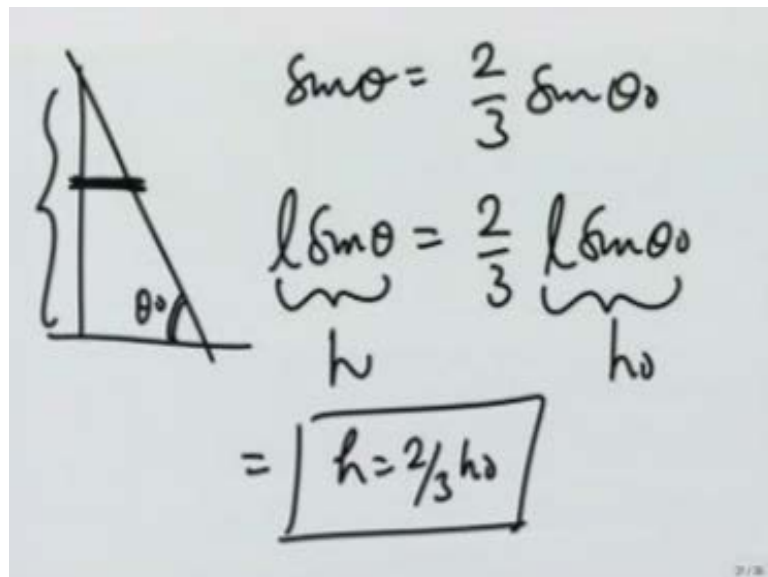 sinθ = 2/3 sinθ₀
l sinθ = 2/3 l sinθ₀
h h₀
θ₀
= h = 2/3 h₀